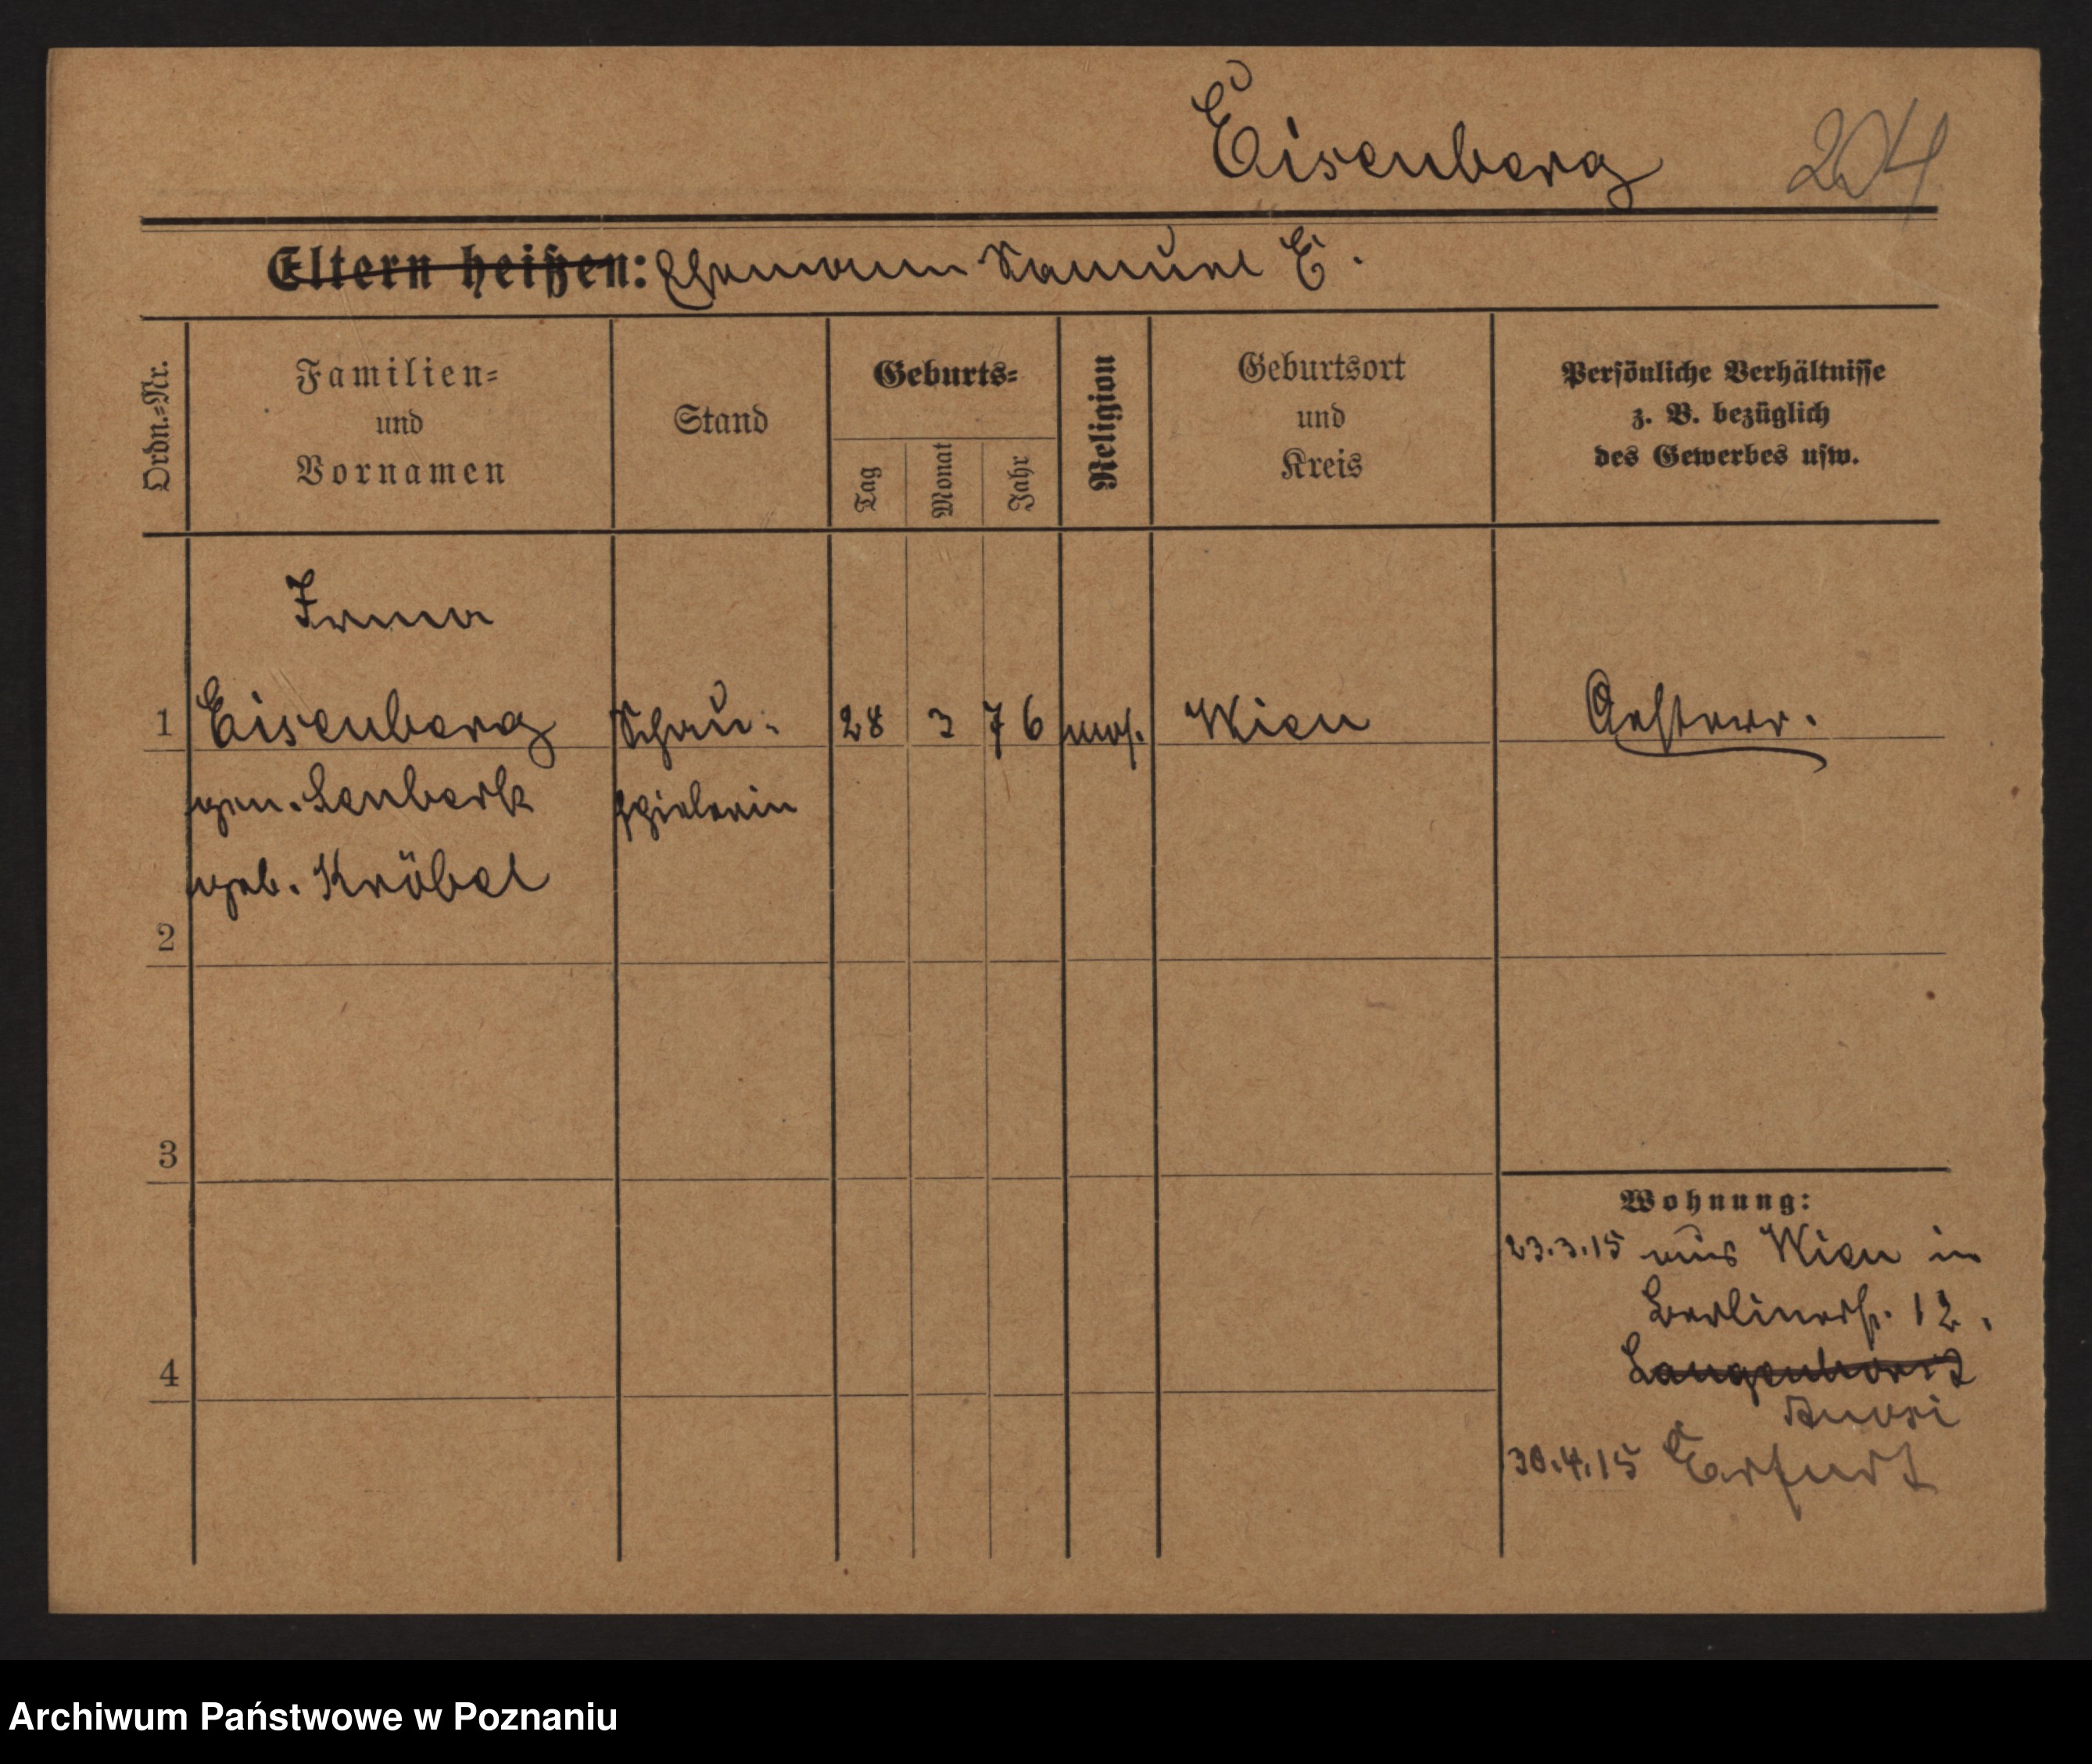 Eisenberg 204
Eltern heißen: Ehemann Samuel E.
Ordn.=Nr.
Familien=
und
Vornamen
Stand
Geburts=
Tag
Monat
Jahr
Religion
Geburtsort
und
Kreis
Persönliche Verhältnisse
z. B. bezüglich
des Gewerbes usw.
Irma
1 Eisenberg Schau- 28 3 76 mos. Wien Oesterr.
gen. Lenberk spielerin
geb. Kröbel
2
3
4
Wohnung:
23.3.15 aus Wien in
Berlinerstr. 12.
30.4.15 Erfurt
Archiwum Państwowe w Poznaniu